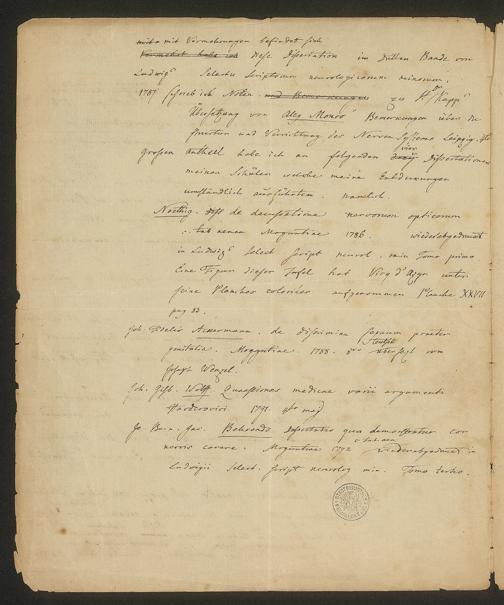 mit Vermehrungen befindet sich
Vermehrt habe ich diese Dissertation im dritten Bande von
Ludwigs Selectus scriptorum neurologicorum minorum.
1787 schrieb ich Noten und Bemerkungen zu Hn Kapp's
Übersetzung von Alex. Monro's Bemerkungen über die
Structur und Verrichtung des Nerven Systems Leipzig. 4to
grossen Antheil habe ich an folgenden vier Dissertationen
meiner Schüler welche meine Entdeckungen
umständlich ausführten. nemlich.
Noethig. de decussatione nervorum opticorum
c. tab. aenea Moguntiae 1786. wiederabgedruckt
in Ludwigs Select. script. neurol. min. Tomo primo.
Eine Figur dieser Tafel hat Vicq d'Azyr unter
seine Planches coloriées aufgenommen Planche XXVII
pag 83.
Joh. Fidelis Ackermann. de discrimine sexuum praeter
genitalia. Moguntiae 1788. teutsch übersezt von
Joseph Wenzel.
Joh. Wolff Quaestiones medicae varii argumenti
Harderovici 1791. 4to maj
Jo. Bern. Jac. Behrends Dissertatio qua demonstratur cor
nervis carere. Moguntiae 1792 c. tab. aen. wiederabgedruckt in
Ludwigii Select. script. neurolog. min. Tomo tertio.